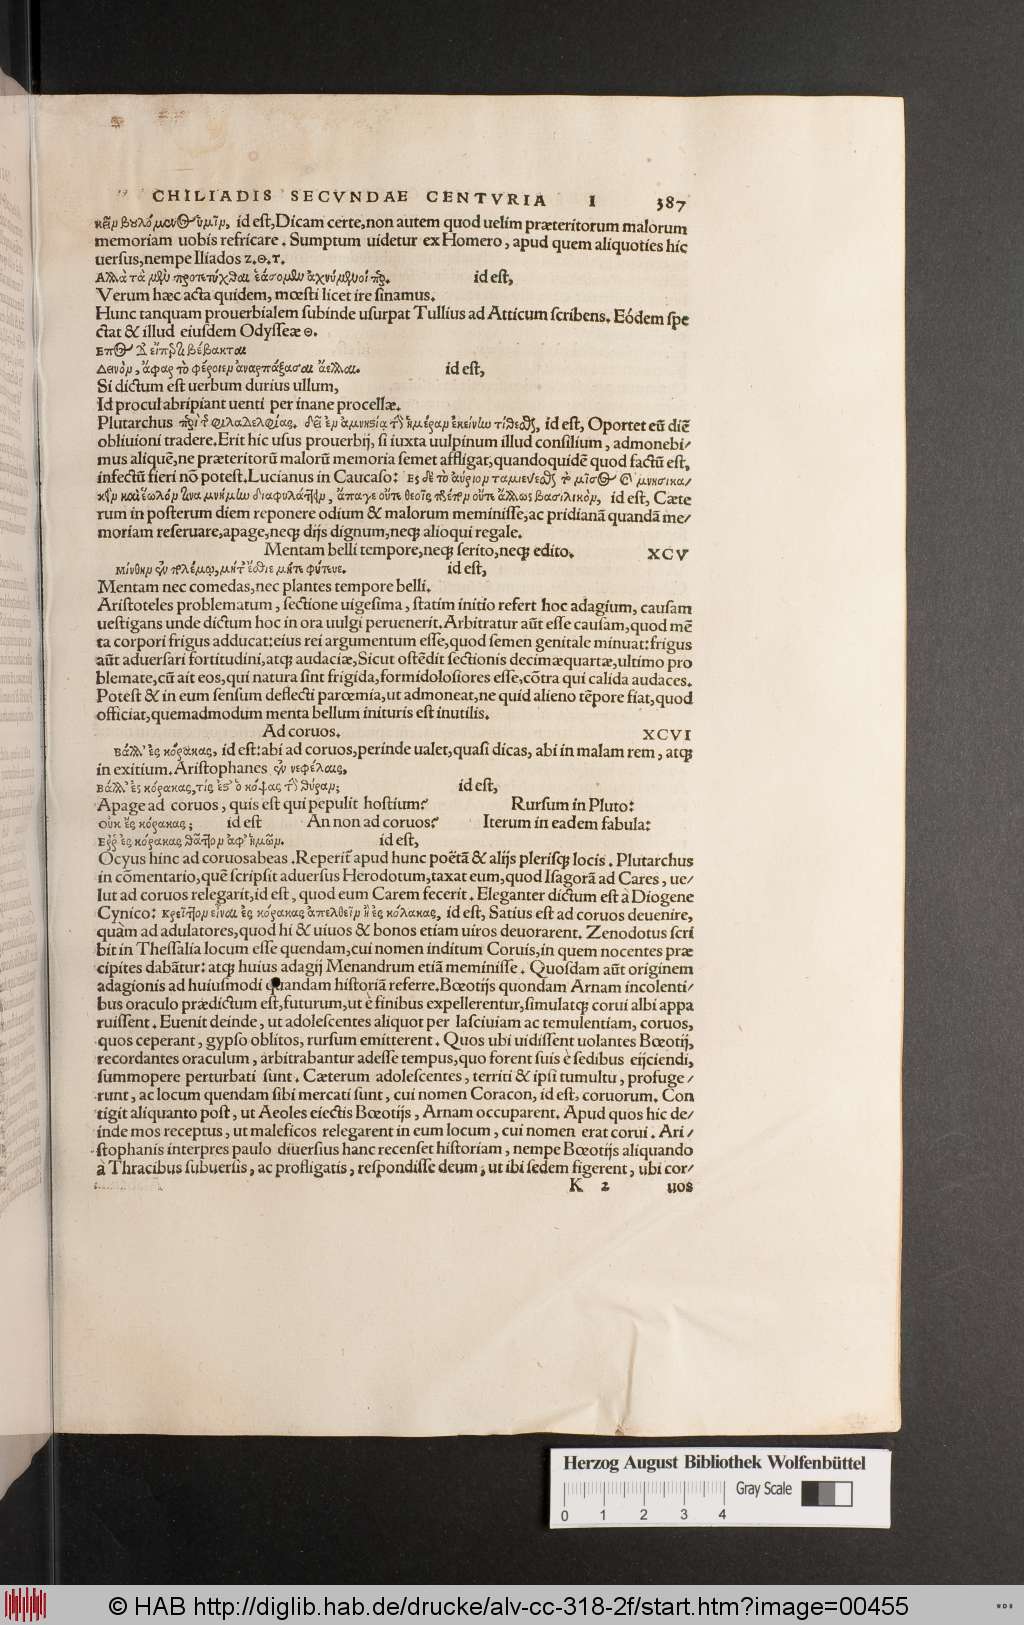 CHILIADIS SECVNDAE CENTVRIA I 387
βουλόμενος ὑμῖν, id eſt, Dicam certe, non autem quod uelim præteritorum malorum
memoriam uobis refricare. Sumptum uidetur ex Homero, apud quem aliquoties hic
uerſus, nempe Iliados Ζ.Θ.Τ.
Αλλὰ τὰ μὲν προτετύχθαι ἐάσομεν ἀχνύμενοί περ. id eſt,
Verum hæc acta quidem, mœſti licet ire ſinamus.
Hunc tanquam prouerbialem ſubinde uſurpat Tullius ad Atticum ſcribens. Eódem ſpe
ctat & illud eiuſdem Odyſſeæ Θ.
Επος δ' εἴπερ τι βέβακται
Δεινὸν, ἄφαρ τὸ φέροιεν ἀναρπάξασαι ἄελλαι. id eſt,
Si dictum eſt uerbum durius ullum,
Id procul abripiant uenti per inane procellæ.
Plutarchus περὶ τῆς φιλαδελφίας. δεῖ ἐν ἀμνηστίᾳ τὴν ἡμέραν ἐκείνην τίθεσθαι, id eſt, Oportet eū diē
obliuioni tradere. Erit hic uſus prouerbij, ſi iuxta uulpinum illud conſilium, admonebi⸗
mus aliquē, ne præteritorū malorū memoria ſemet affligat, quandoquidē quod factū eſt,
infectū fieri nō poteſt. Lucianus in Caucaſo: Ες δὲ τὸ αὔριον ταμιεύεσθαι τὸ μῖσος καὶ μνησικα⸗
κεῖν καὶ ἕωλόν τινα μνήμην διαφυλάττειν, ἄπαγε οὔτε θεοῖς πρέπον οὔτε ἄλλως βασιλικὸν, id eſt, Cæte
rum in poſterum diem reponere odium & malorum meminiſſe, ac pridianā quandā me⸗
moriam reſeruare, apage, neqꝫ dijs dignum, neqꝫ alioqui regale.
Mentam belli tempore, neqꝫ ſerito, neqꝫ edito. XCV
Μίνθην ἐν πολέμῳ, μήτ' ἔσθιε μήτε φύτευε. id eſt,
Mentam nec comedas, nec plantes tempore belli.
Ariſtoteles problematum, ſectione uigeſima, ſtatim initio refert hoc adagium, cauſam
ueſtigans unde dictum hoc in ora uulgi peruenerit. Arbitratur aūt eſſe cauſam, quod mē
ta corpori frigus adducat: eius rei argumentum eſſe, quod ſemen genitale minuat: frigus
aūt aduerſari fortitudini, atqꝫ audaciæ, Sicut oſtēdit ſectionis decimæquartæ, ultimo pro
blemate, cū ait eos, qui natura ſint frigida, formidoloſiores eſſe, cōtra qui calida audaces.
Poteſt & in eum ſenſum deflecti parœmia, ut admoneat, ne quid alieno tēpore fiat, quod
officiat, quemadmodum menta bellum inituris eſt inutilis.
Ad coruos. XCVI
Βάλλ' ἐς κόρακας, id eſt: abi ad coruos, perinde ualet, quaſi dicas, abi in malam rem, atqꝫ
in exitium. Ariſtophanes ἐν νεφέλαις,
Βάλλ' ἐς κόρακας, τίς ἐσθ' ὁ κόψας τὴν θύραν; id eſt,
Apage ad coruos, quis eſt qui pepulit hoſtium? Rurſum in Pluto:
Οὐκ ἐς κόρακας; id eſt An non ad coruos? Iterum in eadem fabula:
Ερρ' ἐς κόρακας θᾶττον ἀφ' ἡμῶν. id eſt,
Ocyus hinc ad coruos abeas. Reperit apud hunc poëtā & alijs pleriſqꝫ locis. Plutarchus
in cōmentario, quē ſcripſit aduerſus Herodotum, taxat eum, quod Iſagorā ad Cares, ue⸗
lut ad coruos relegarit, id eſt, quod eum Carem fecerit. Eleganter dictum eſt à Diogene
Cynico: Κρεῖττον εἶναι ἐς κόρακας ἀπελθεῖν ἢ ἐς κόλακας, id eſt, Satius eſt ad coruos deuenire,
quàm ad adulatores, quod hi & uiuos & bonos etiam uiros deuorarent. Zenodotus ſcri
bit in Theſſalia locum eſſe quendam, cui nomen inditum Coruis, in quem nocentes præ
cipites dabātur: atqꝫ huius adagij Menandrum etiā meminiſſe. Quoſdam aūt originem
adagionis ad huiuſmodi quandam hiſtoriā referre. Bœotijs quondam Arnam incolenti⸗
bus oraculo prædictum eſt, futurum, ut è finibus expellerentur, ſimulatqꝫ corui albi appa
ruiſſent. Euenit deinde, ut adoleſcentes aliquot per laſciuiam ac temulentiam, coruos,
quos ceperant, gypſo oblitos, rurſum emitterent. Quos ubi uidiſſent uolantes Bœotij,
recordantes oraculum, arbitrabantur adeſſe tempus, quo forent ſuis è ſedibus eijciendi,
ſummopere perturbati ſunt. Cæterum adoleſcentes, territi & ipſi tumultu, profuge⸗
runt, ac locum quendam ſibi mercati ſunt, cui nomen Coracon, id eſt, coruorum. Con
tigit aliquanto poſt, ut Aeoles eiectis Bœotijs, Arnam occuparent. Apud quos hic de⸗
inde mos receptus, ut maleficos relegarent in eum locum, cui nomen erat corui. Ari⸗
ſtophanis interpres paulo diuerſius hanc recenſet hiſtoriam, nempe Bœotijs aliquando
à Thracibus ſubuerſis, ac profligatis, reſpondiſſe deum, ut ibi ſedem figerent, ubi cor⸗
K 2 uos
Herzog August Bibliothek Wolfenbüttel
0 1 2 3 4 Gray Scale
© HAB http://diglib.hab.de/drucke/alv-cc-318-2f/start.htm?image=00455